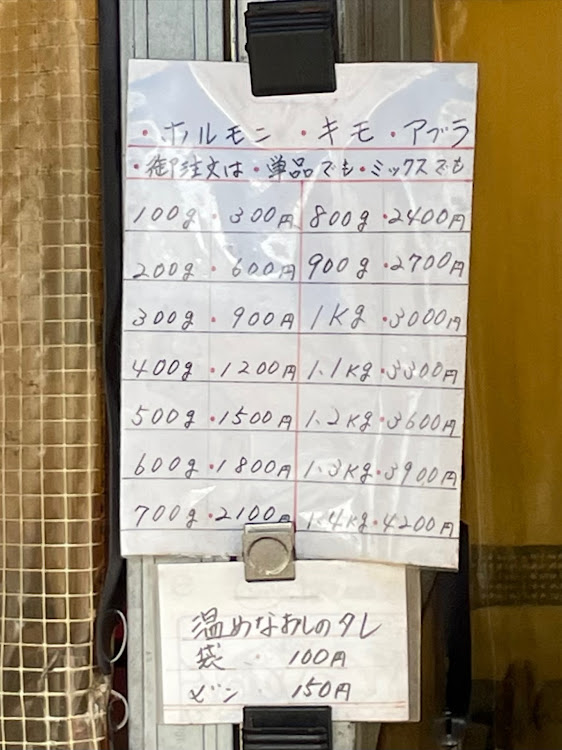 ・ホルモン ・キモ ・アブラ
・御注文は・単品でも・ミックスでも
100g・300円 800g・2400円
200g・600円 900g・2700円
300g・900円 1Kg・3000円
400g・1200円 1.1Kg・3300円
500g・1500円 1.2Kg・3600円
600g・1800円 1.3Kg・3900円
700g・2100円 1.4Kg・4200円
温めなおしのタレ
袋・100円
ビン・150円